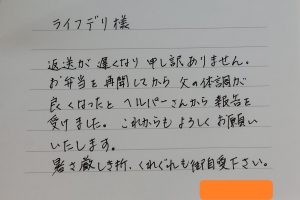 ライフデリ様
返送が遅くなり申し訳ありません。
お弁当を再開してから父の体調が
良くなったとヘルパーさんから報告を
受けました。これからもよろしくお願い
いたします。
暑さ厳しき折、くれぐれも御自愛下さい。